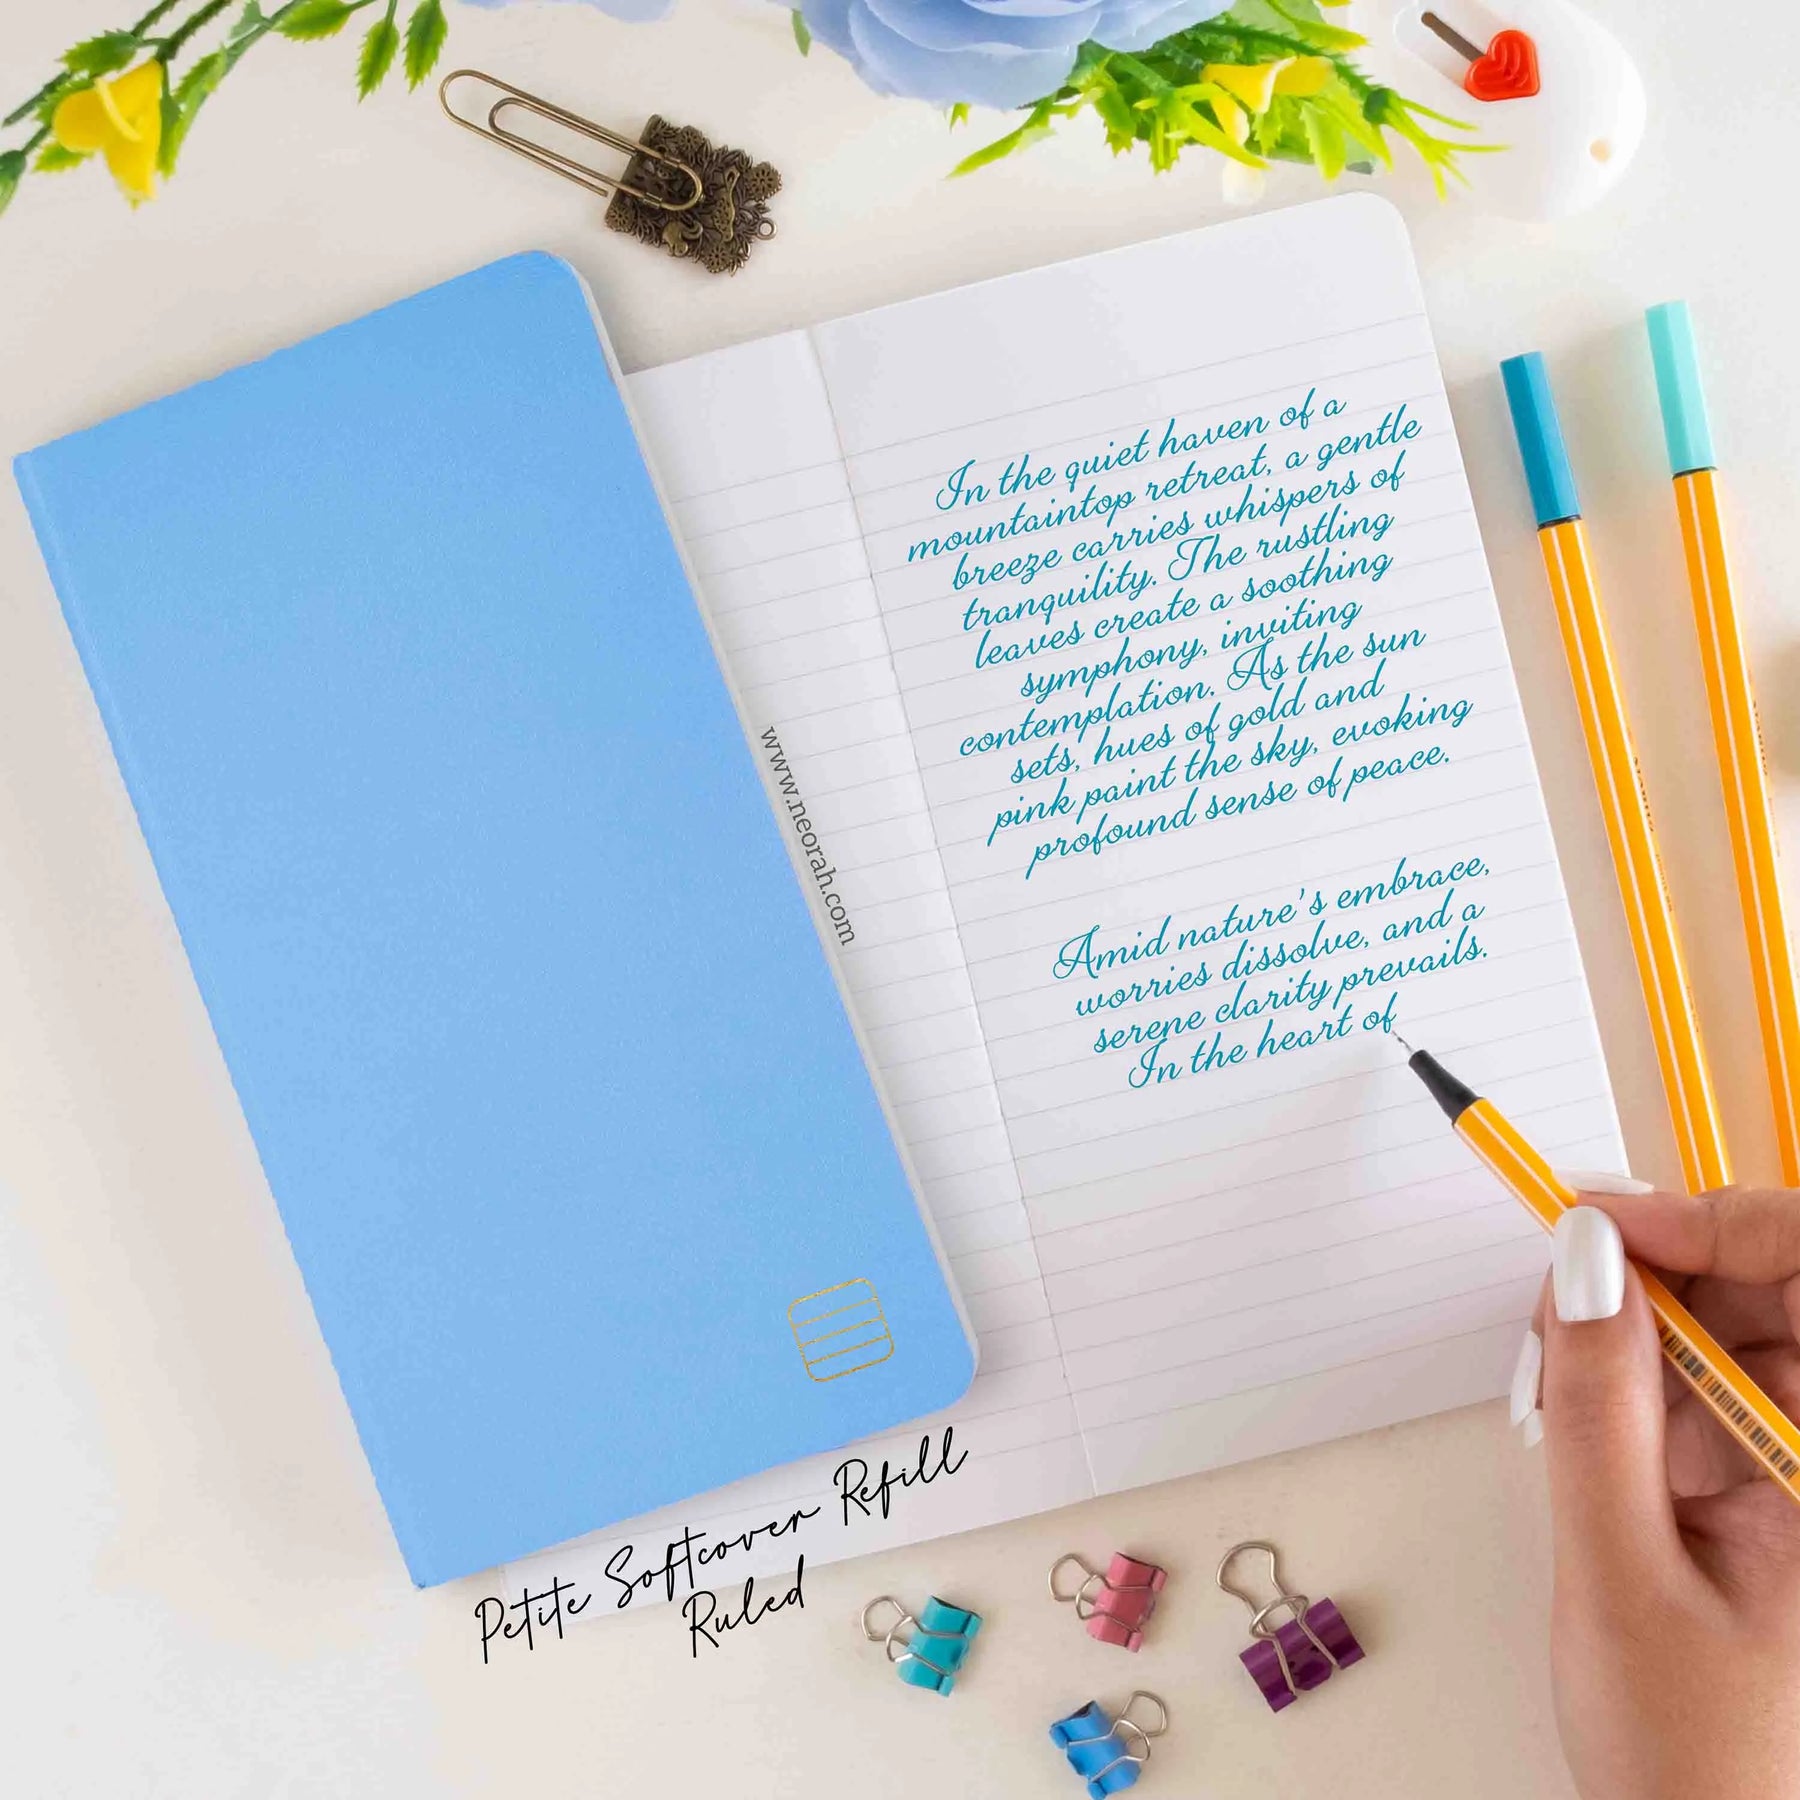 In the quiet haven of a
mountaintop retreat, a gentle
breeze carries whispers of
tranquility. The rustling
leaves create a soothing
symphony, inviting
contemplation. As the sun
sets, hues of gold and
pink paint the sky, evoking
profound sense of peace.
Amid nature's embrace,
worries dissolve, and a
serene clarity prevails.
In the heart of
www.neorah.com
Petite Softcover Refill
Ruled